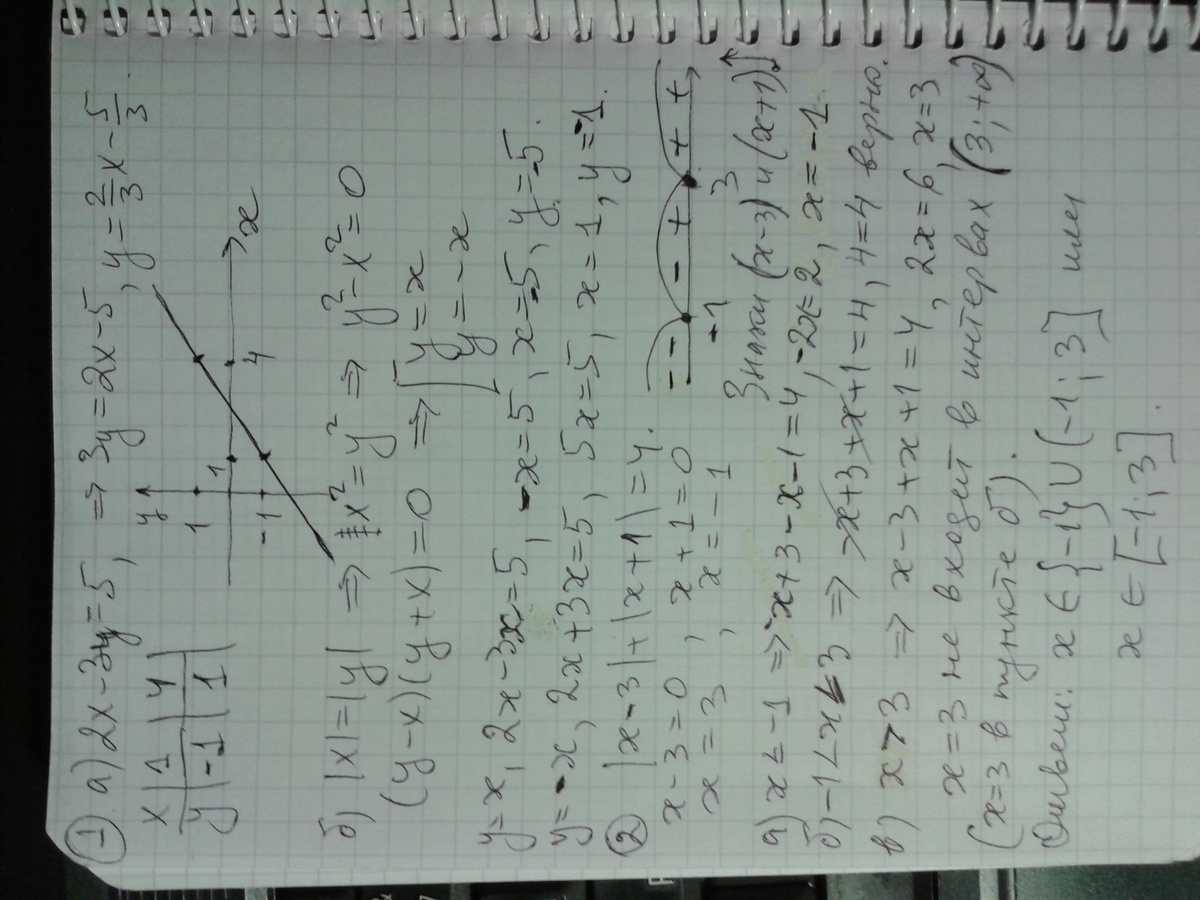 ① а) 2x-3y=5, ⇒ 3y=2x-5, y=2/3x-5/3
x | 1 | 4 |
y | -1 | 1 |
y
1
1
4
x
-1
б) |x|=|y| ⇒ x²=y² ⇒ y²-x²=0
(y-x)(y+x)=0 ⇒ [y=x
y=-x
y=x, 2x-3x=5, -x=5, x=-5, y=-5.
y=-x, 2x+3x=5, 5x=5, x=1, y=-1.
② |x-3|+|x+1|=4.
x-3=0, x+1=0
x=3, x=-1
-- -+ ++
-1 3
Знаки (x-3) и (x+1)
а) x≤-1 ⇒ -x+3-x-1=4, -2x=2, x=-1
б) -1<x≤3 ⇒ -x+3+x+1=4, 4=4 верно.
в) x>3 ⇒ x-3+x+1=4, 2x=6, x=3
x=3 не входит в интервал (3;+∞)
(x=3 в пункте б).
Ответ: x∈{-1}∪(-1;3] или
x∈[-1;3].